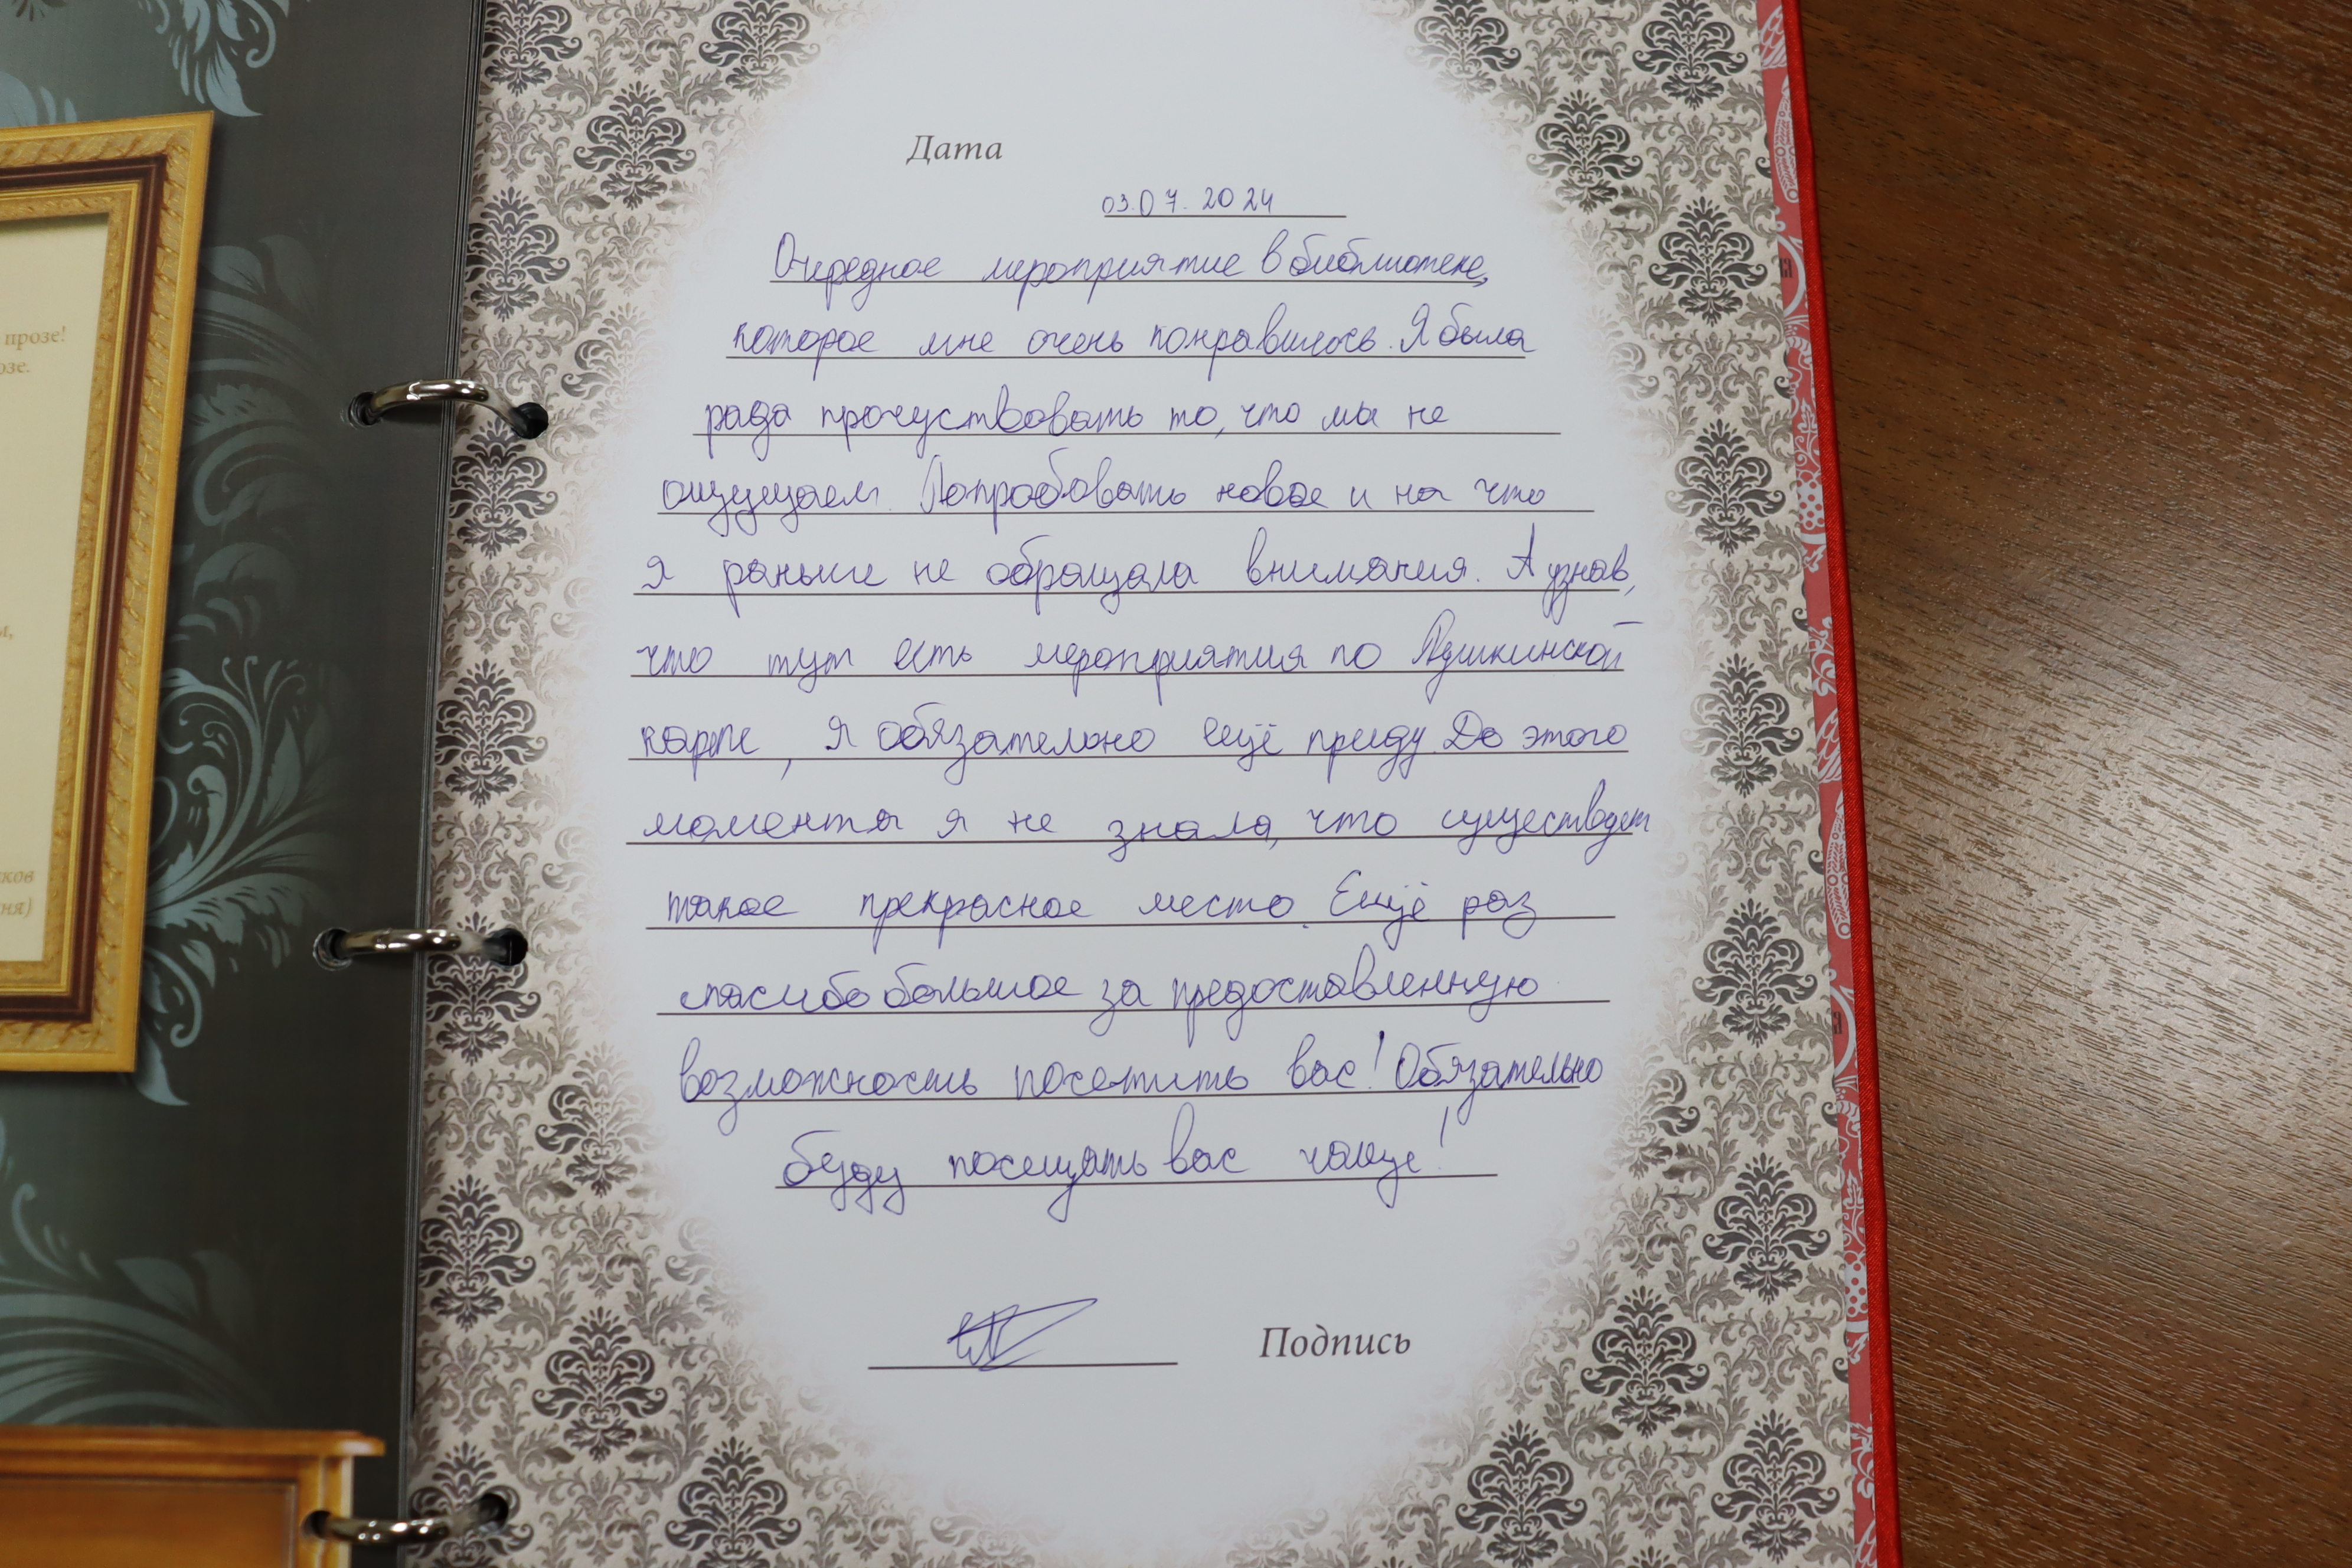 прозе!
озе.
м,
ков
ня)
Дата
03.07.2024
Очередное мероприятие в библиотеке,
которое мне очень понравилось. Я была
рада прочуствовать то, что мы не
ощущаем. Попробовать новое и на что
я раньше не обращала внимания. А узнав,
что тут есть мероприятия по Пушкинской
карте, я обязательно ещё приду. До этого
момента я не знала, что существует
такое прекрасное место. Ещё раз
спасибо большое за предоставленную
возможность посетить вас! Обязательно
буду посещать вас чаще!
Подпись